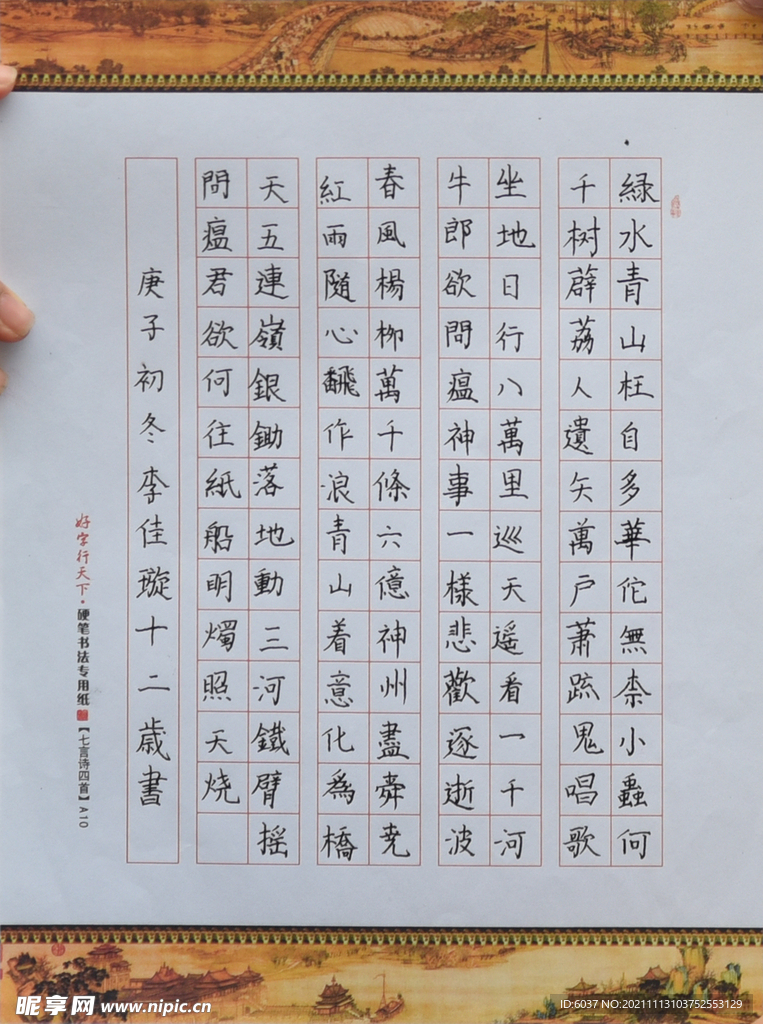 緑水青山枉自多華佗無柰小蟲何
千树薜荔人遺矢萬户蕭疏鬼唱歌
坐地日行八萬里巡天遥看一千河
牛郎欲問瘟神事一樣悲歡逐逝波
春風楊柳萬千條六億神州盡舜尭
紅雨隨心飜作浪青山着意化為橋
天五連嶺銀鋤落地動三河鐵臂摇
問瘟君欲何往紙船明燭照天烧
庚子初冬李佳璇十二歲書
好字行天下·硬笔书法专用纸【七言诗四首】A10
昵享网 www.nipic.cn
ID:6037 NO:20211113103752553129